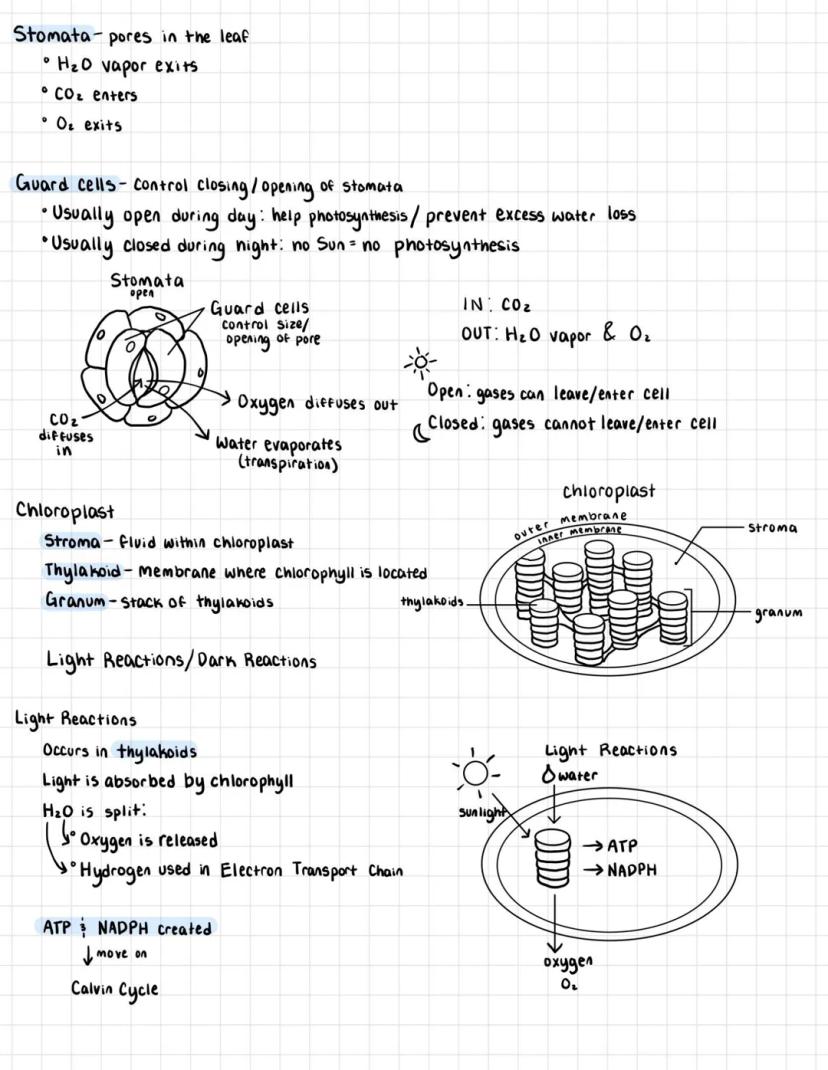 Stomata - pores in the leaf
• H₂O vapor exits
• CO₂ enters
• O₂ exits
Guard cells - Control closing/opening of stomata
• Usually open during day: help photosynthesis/ prevent excess water loss
• Usually closed during night: no Sun = no photosynthesis
Stomata
open
Guard cells
control size/
opening of pore
Oxygen diffuses out
CO₂
diffuses
in
Water evaporates
(transpiration)
IN: CO₂
OUT: H₂O vapor & O₂
Open: gases can leave/enter cell
Closed: gases cannot leave/enter cell
Chloroplast
Stroma - fluid within chloroplast
Thylakoid - Membrane where chlorophyll is located
Granum - stack of thylakoids
Light Reactions/Dark Reactions
Chloroplast
outer membrane
inner membrane
stroma
thylakoids
granum
Light Reactions
Occurs in thylakoids
Light is absorbed by chlorophyll
H₂O is split:
• Oxygen is released
• Hydrogen used in Electron Transport Chain
ATP & NADPH created
↓ move on
Calvin Cycle
Light Reactions
water
sunlight
→ ATP
→ NADPH
oxygen
O₂